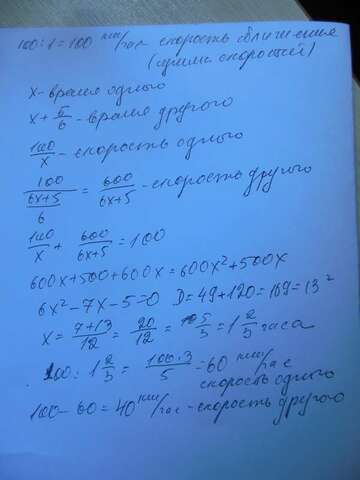 100:1=100 км/час скорость сближения
(сумма скоростей)
x-время одного
x+5/6-время другого
100/x-скорость одного
100/((6x+5)/6)=600/(6x+5)-скорость другого
100/x+600/(6x+5)=100
600x+500+600x=600x²+500x
6x²-7x-5=0 D=49+120=169=13²
x=(7+13)/12=20/12=5/3=1 2/3 часа
100:1 2/3=(100·3)/5=60 км/час
скорость одного
100-60=40 км/час-скорость другого